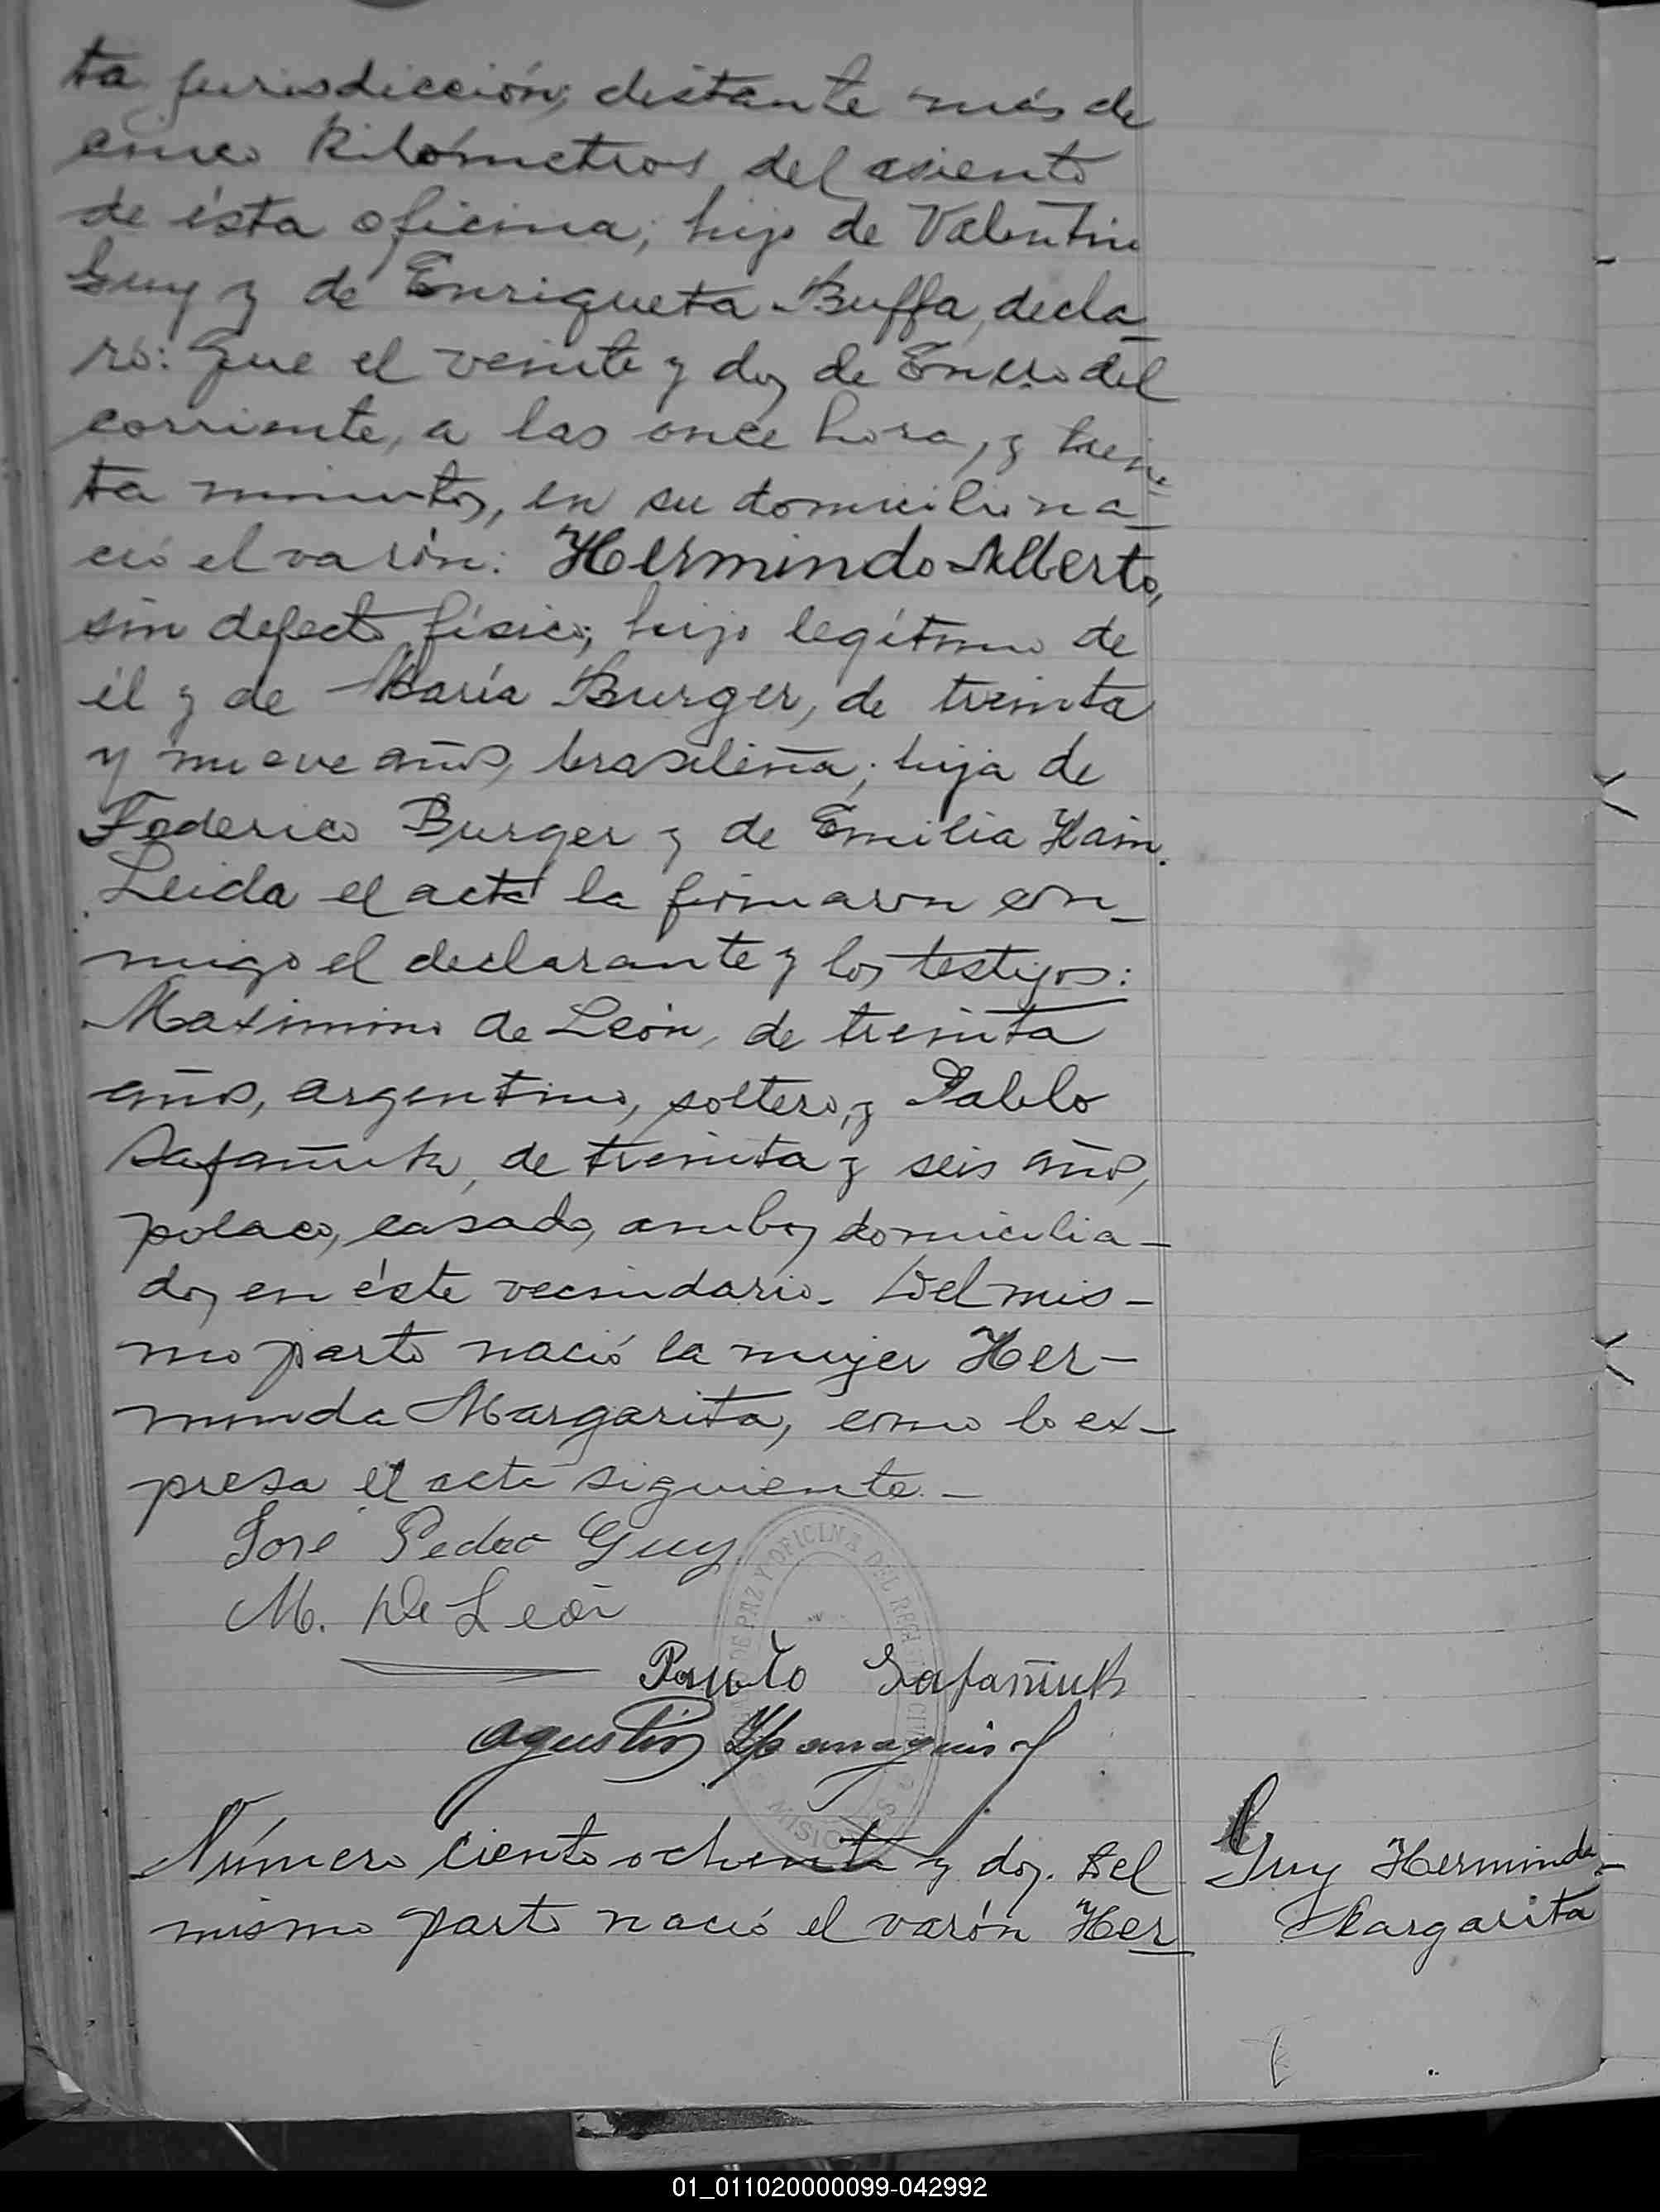 ta jurisdicción, distante más de
cinco Kilómetros del asiento
de ésta oficina; hijo de Valentin
Guy y de Enriqueta Buffa, decla_
ró: Que el veinte y dos de Enero del
corriente, a las once horas, y trein_
ta minutos, en su domicilio na_
ció el varón: Hermindo Alberto,
sin defecto físico; hijo legítimo de
él y de María Burger, de treinta
y nueve años, brasileña; hija de
Federico Burger y de Emilia Hain.
Leida el acta la firmaron con_
migo el declarante y los testigos:
Maximino de León, de treinta
años, argentino, soltero, y Pablo
Safañuk, de treinta y seis años,
polaco, casado, ambos domicilia-
dos en éste vecindario. Del mis-
mo parto nació la mujer Her-
minda Margarita, como lo ex-
presa el acta siguiente.-
José Pedro Guy
M. De León
Pawlo Safañiuk
Agustín
DE PAZ Y OFICINA DEL REGI CIVI
MISIO
Número ciento ochenta y dos. Del
mismo parto nació el varón Her_
Guy Herminda_
Margarita
01_011020000099-042992